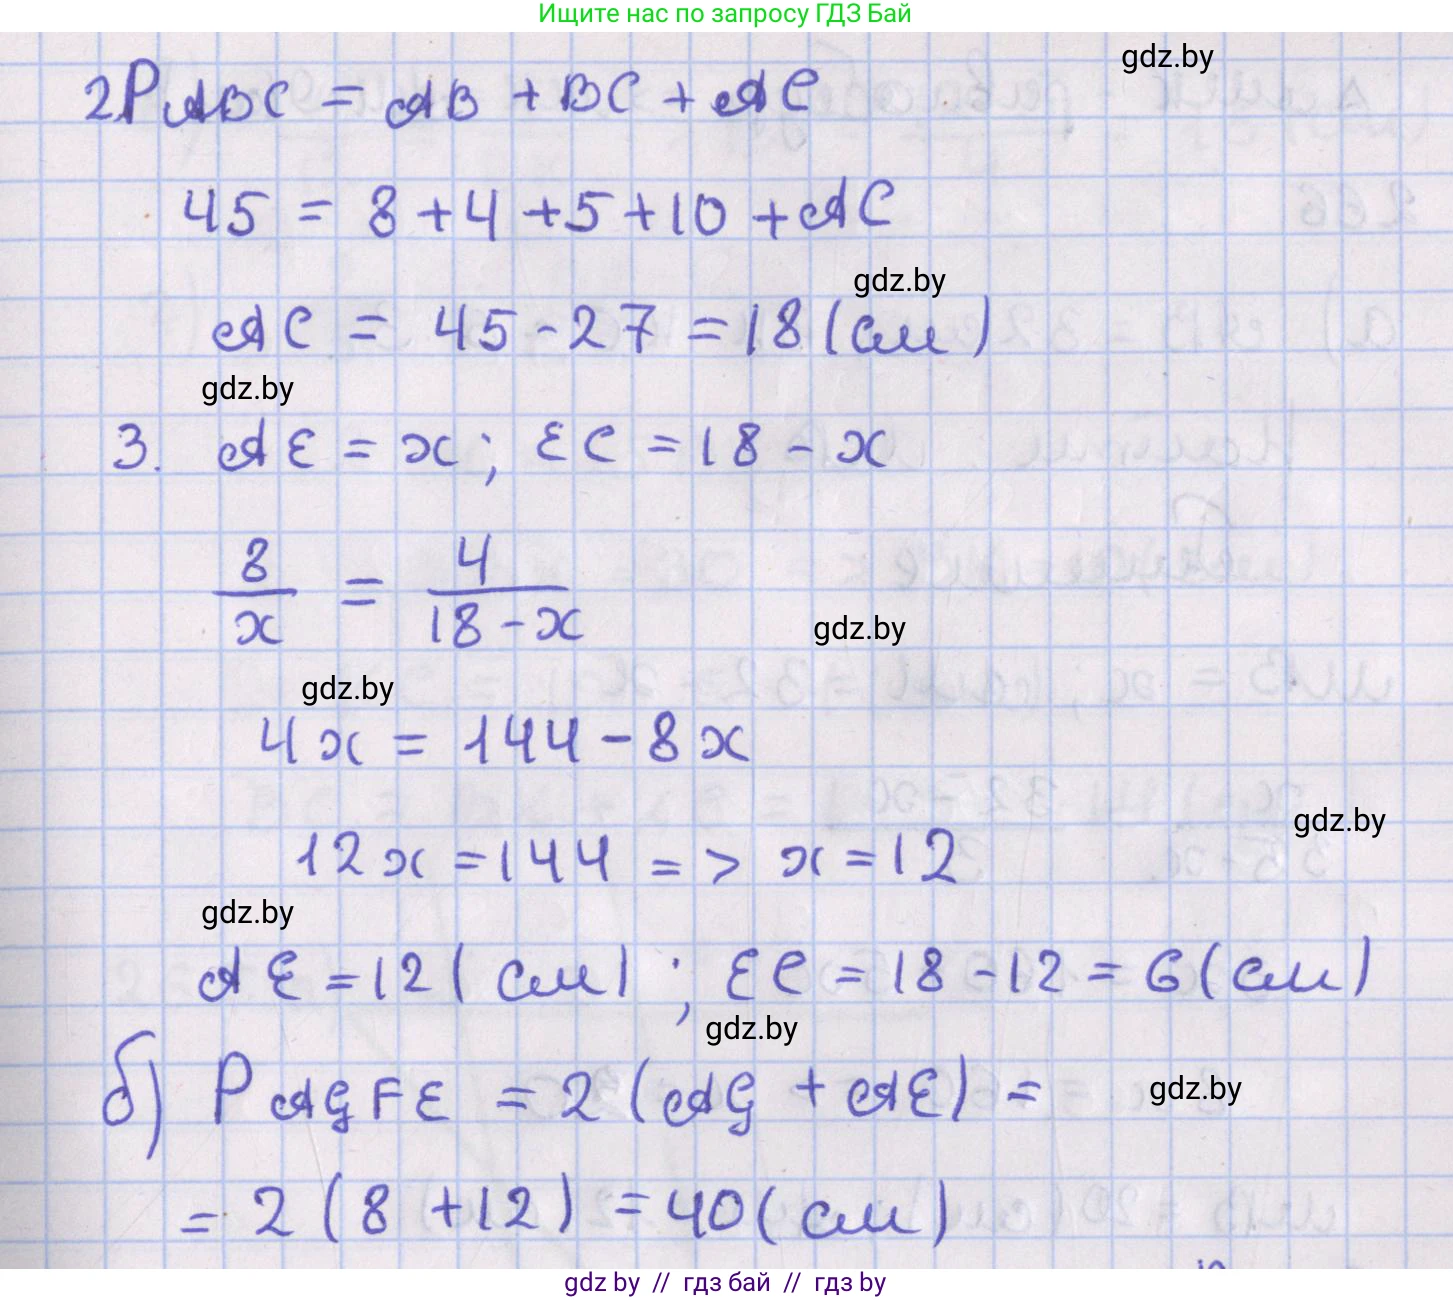 Ищите нас по запросу ГДЗ Бай
gdz.by
2. P ABC = AB + BC + AC
45 = 8 + 4 + 5 + 10 + AC
gdz.by
AC = 45 - 27 = 18 (см)
gdz.by
3. AE = x; EC = 18 - x
8/x = 4/(18 - x)
gdz.by
gdz.by
4x = 144 - 8x
gdz.by
12x = 144 => x = 12
gdz.by
AE = 12 (см); EC = 18 - 12 = 6 (см)
gdz.by
б) P AGFE = 2 (AG + AE) =
gdz.by
= 2 (8 + 12) = 40 (см)
gdz by // гдз бай // гдз by